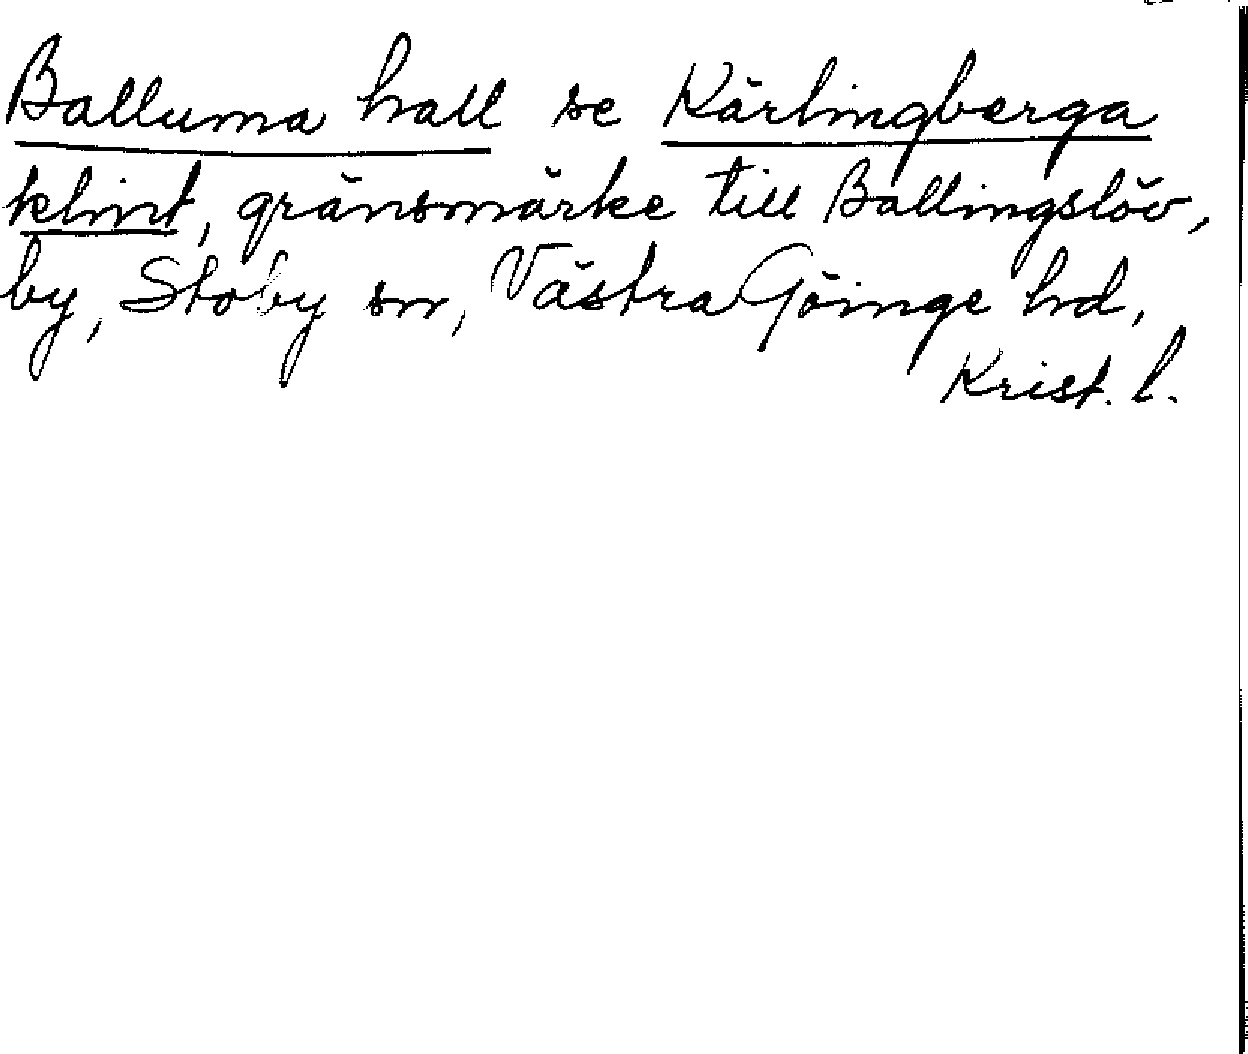 Balluma hall se Kärlingberga
klint, gränsmärke till Ballingslöv,
by, Stoby sn, Västra Göinge hd,
Krist. l.